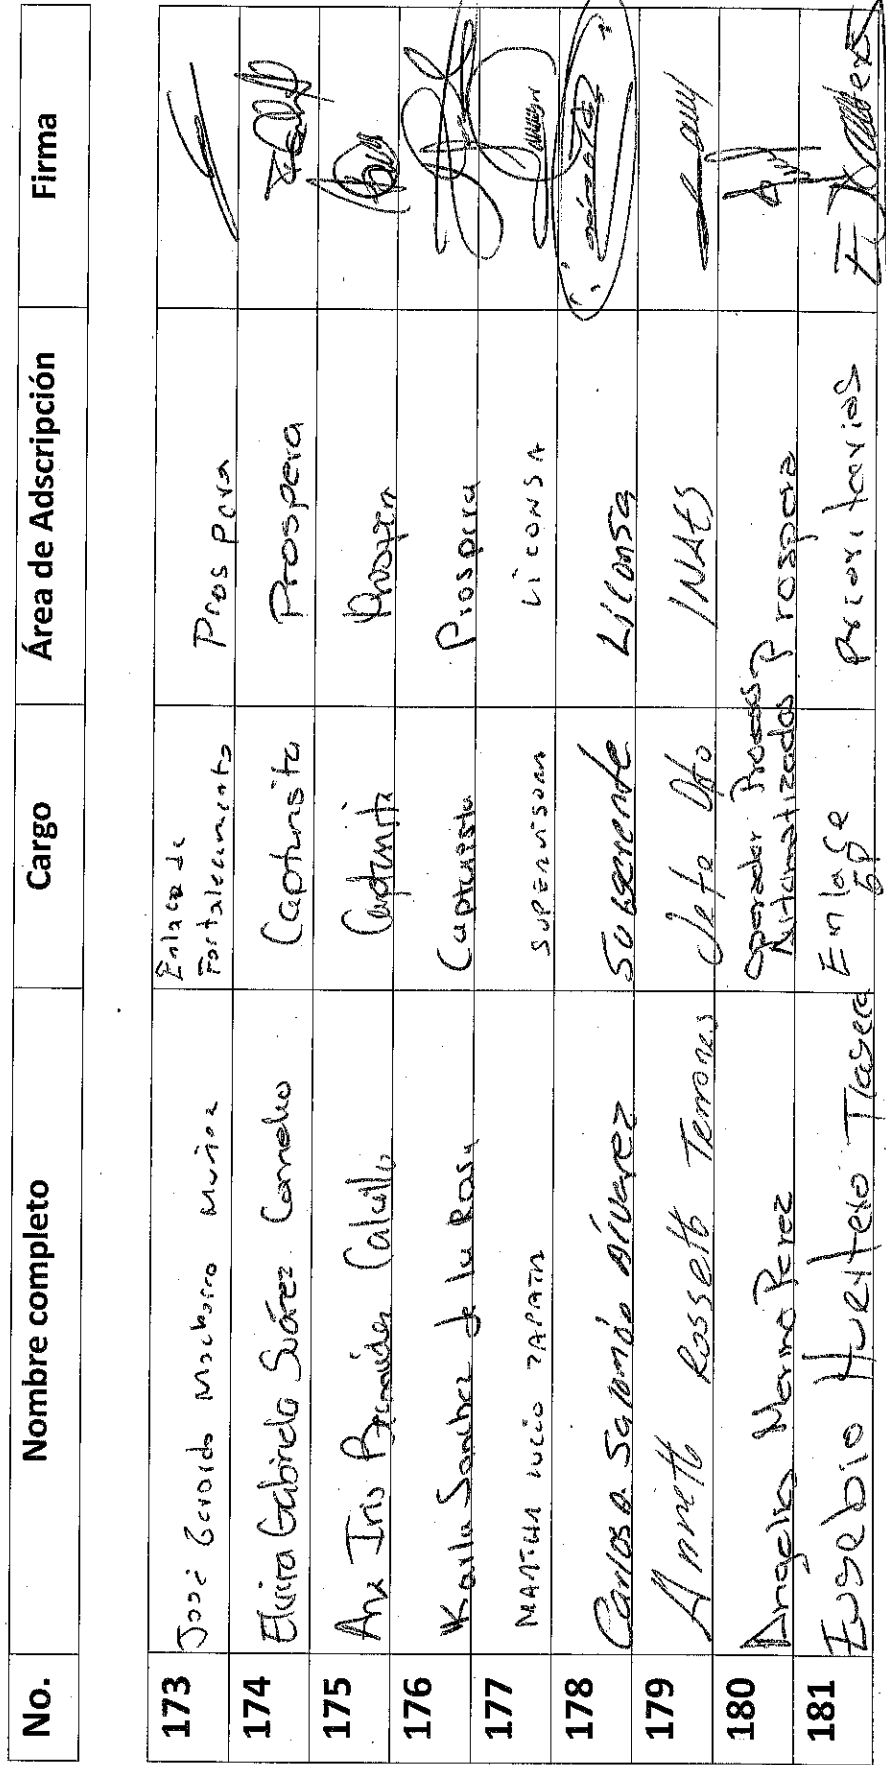 No. Nombre completo Cargo Área de Adscripción Firma
173 José Gerardo Machorro Muñoz Enlace de Fortalecimiento Prospera
174 Elvira Gabriela Suárez Camacho Capturista Prospera
175 Ana Iris Bermúdez Calcillo Capturista Prospera
176 Karla Sanchez de la Rosa Capturista Prospera
177 MARTHA LUCIO ZAPATA SUPERVISORA LICONSA
178 Carlos A. Salomón Álvarez Subgerente Liconsa
179 Annett Rossett Terrones Jefe Dpto INAES
180 Angelia Merino Perez Operador Procesos Automatizados Prospera
181 Eusebio Huerfexo Tlaseca Enlace GP Prioritarios